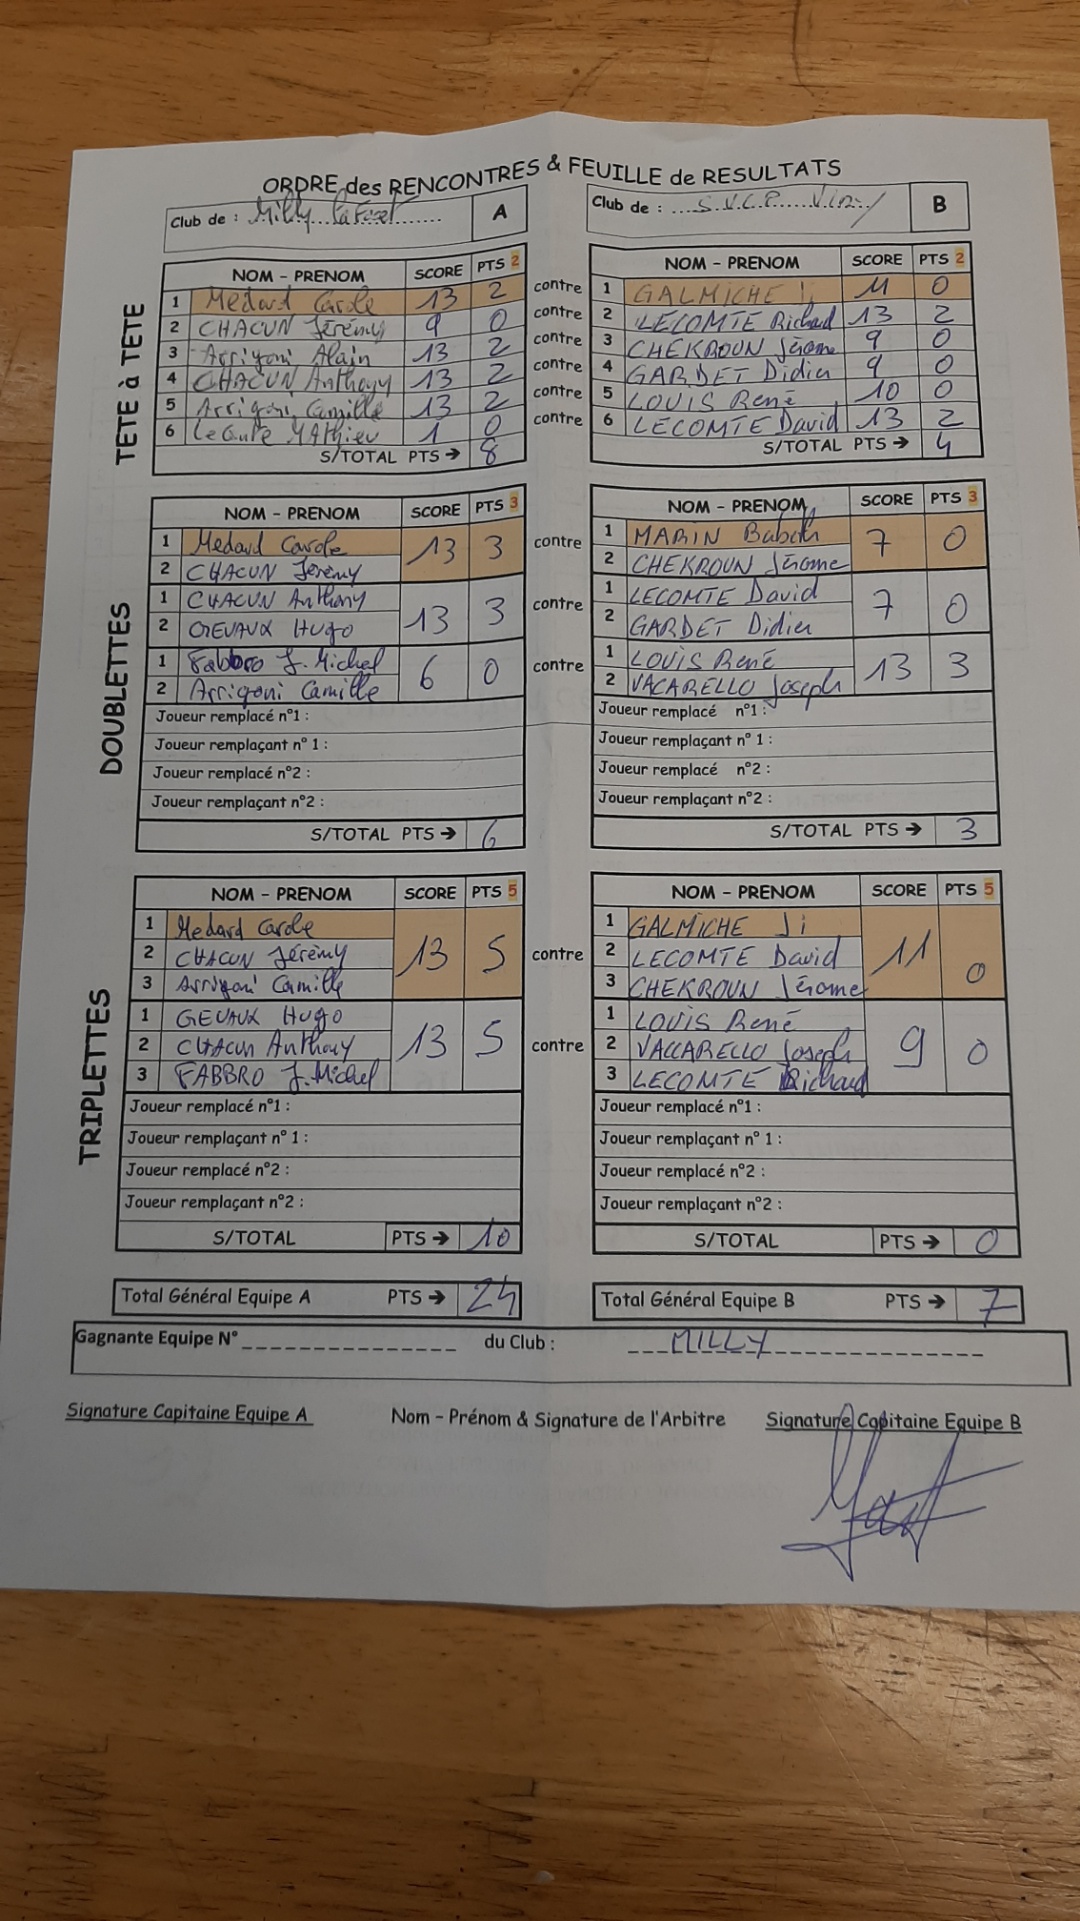 ORDRE des RENCONTRES & FEUILLE de RESULTATS
Club de : Milly la Foret A
Club de : S.V.C.P. Viry B
TETE à TETE
NOM - PRENOM SCORE PTS 2 NOM - PRENOM SCORE PTS 2
1 Medard Carole 13 2 contre 1 GALMICHE 11 0
2 CHACUN Jérémy 9 0 contre 2 LECOMTE Richad 13 2
3 Arrigoni Alain 13 2 contre 3 CHEKROUN Jérome 9 0
4 CHACUN Anthony 13 2 contre 4 GARDET Didier 9 0
5 Arrigoni Camille 13 2 contre 5 LOUIS René 10 0
6 LeComte MAthieu 1 0 contre 6 LECOMTE David 13 2
S/TOTAL PTS → 8 S/TOTAL PTS → 4
DOUBLETTES
NOM - PRENOM SCORE PTS 3 NOM - PRENOM SCORE PTS 3
1 Medard Carole 13 3 contre 1 MARIN 7 0
2 CHACUN Jérémy 2 CHEKROUN Jérome
1 CHACUN Anthony 13 3 contre 1 LECOMTE David 7 0
2 GEVAUX Hugo 2 GARDET Didier
1 Fabbro J. Michel 6 0 contre 1 LOUIS René 13 3
2 Arrigoni Camille 2 VACARELLO Joseph
Joueur remplacé n°1 : Joueur remplacé n°1 :
Joueur remplaçant n° 1 : Joueur remplaçant n° 1 :
Joueur remplacé n°2 : Joueur remplacé n°2 :
Joueur remplaçant n°2 : Joueur remplaçant n°2 :
S/TOTAL PTS → 6 S/TOTAL PTS → 3
TRIPLETTES
NOM - PRENOM SCORE PTS 5 NOM - PRENOM SCORE PTS 5
1 Medard Carole 13 5 contre 1 GALMICHE Ji 11 0
2 CHACUN Jérémy 2 LECOMTE David
3 Arrigoni Camille 3 CHEKROUN Jérome
1 GEVAUX Hugo 13 5 contre 1 LOUIS René 9 0
2 CHACUN Anthony 2 VACCARELLO Joseph
3 FABBRO J. Michel 3 LECOMTE Richaud
Joueur remplacé n°1 : Joueur remplacé n°1 :
Joueur remplaçant n° 1 : Joueur remplaçant n° 1 :
Joueur remplacé n°2 : Joueur remplacé n°2 :
Joueur remplaçant n°2 : Joueur remplaçant n°2 :
S/TOTAL PTS → 10 S/TOTAL PTS → 0
Total Général Equipe A PTS → 24 Total Général Equipe B PTS → 7
Gagnante Equipe N° du Club : MILLY
Signature Capitaine Equipe A Nom - Prénom & Signature de l'Arbitre Signature Capitaine Equipe B